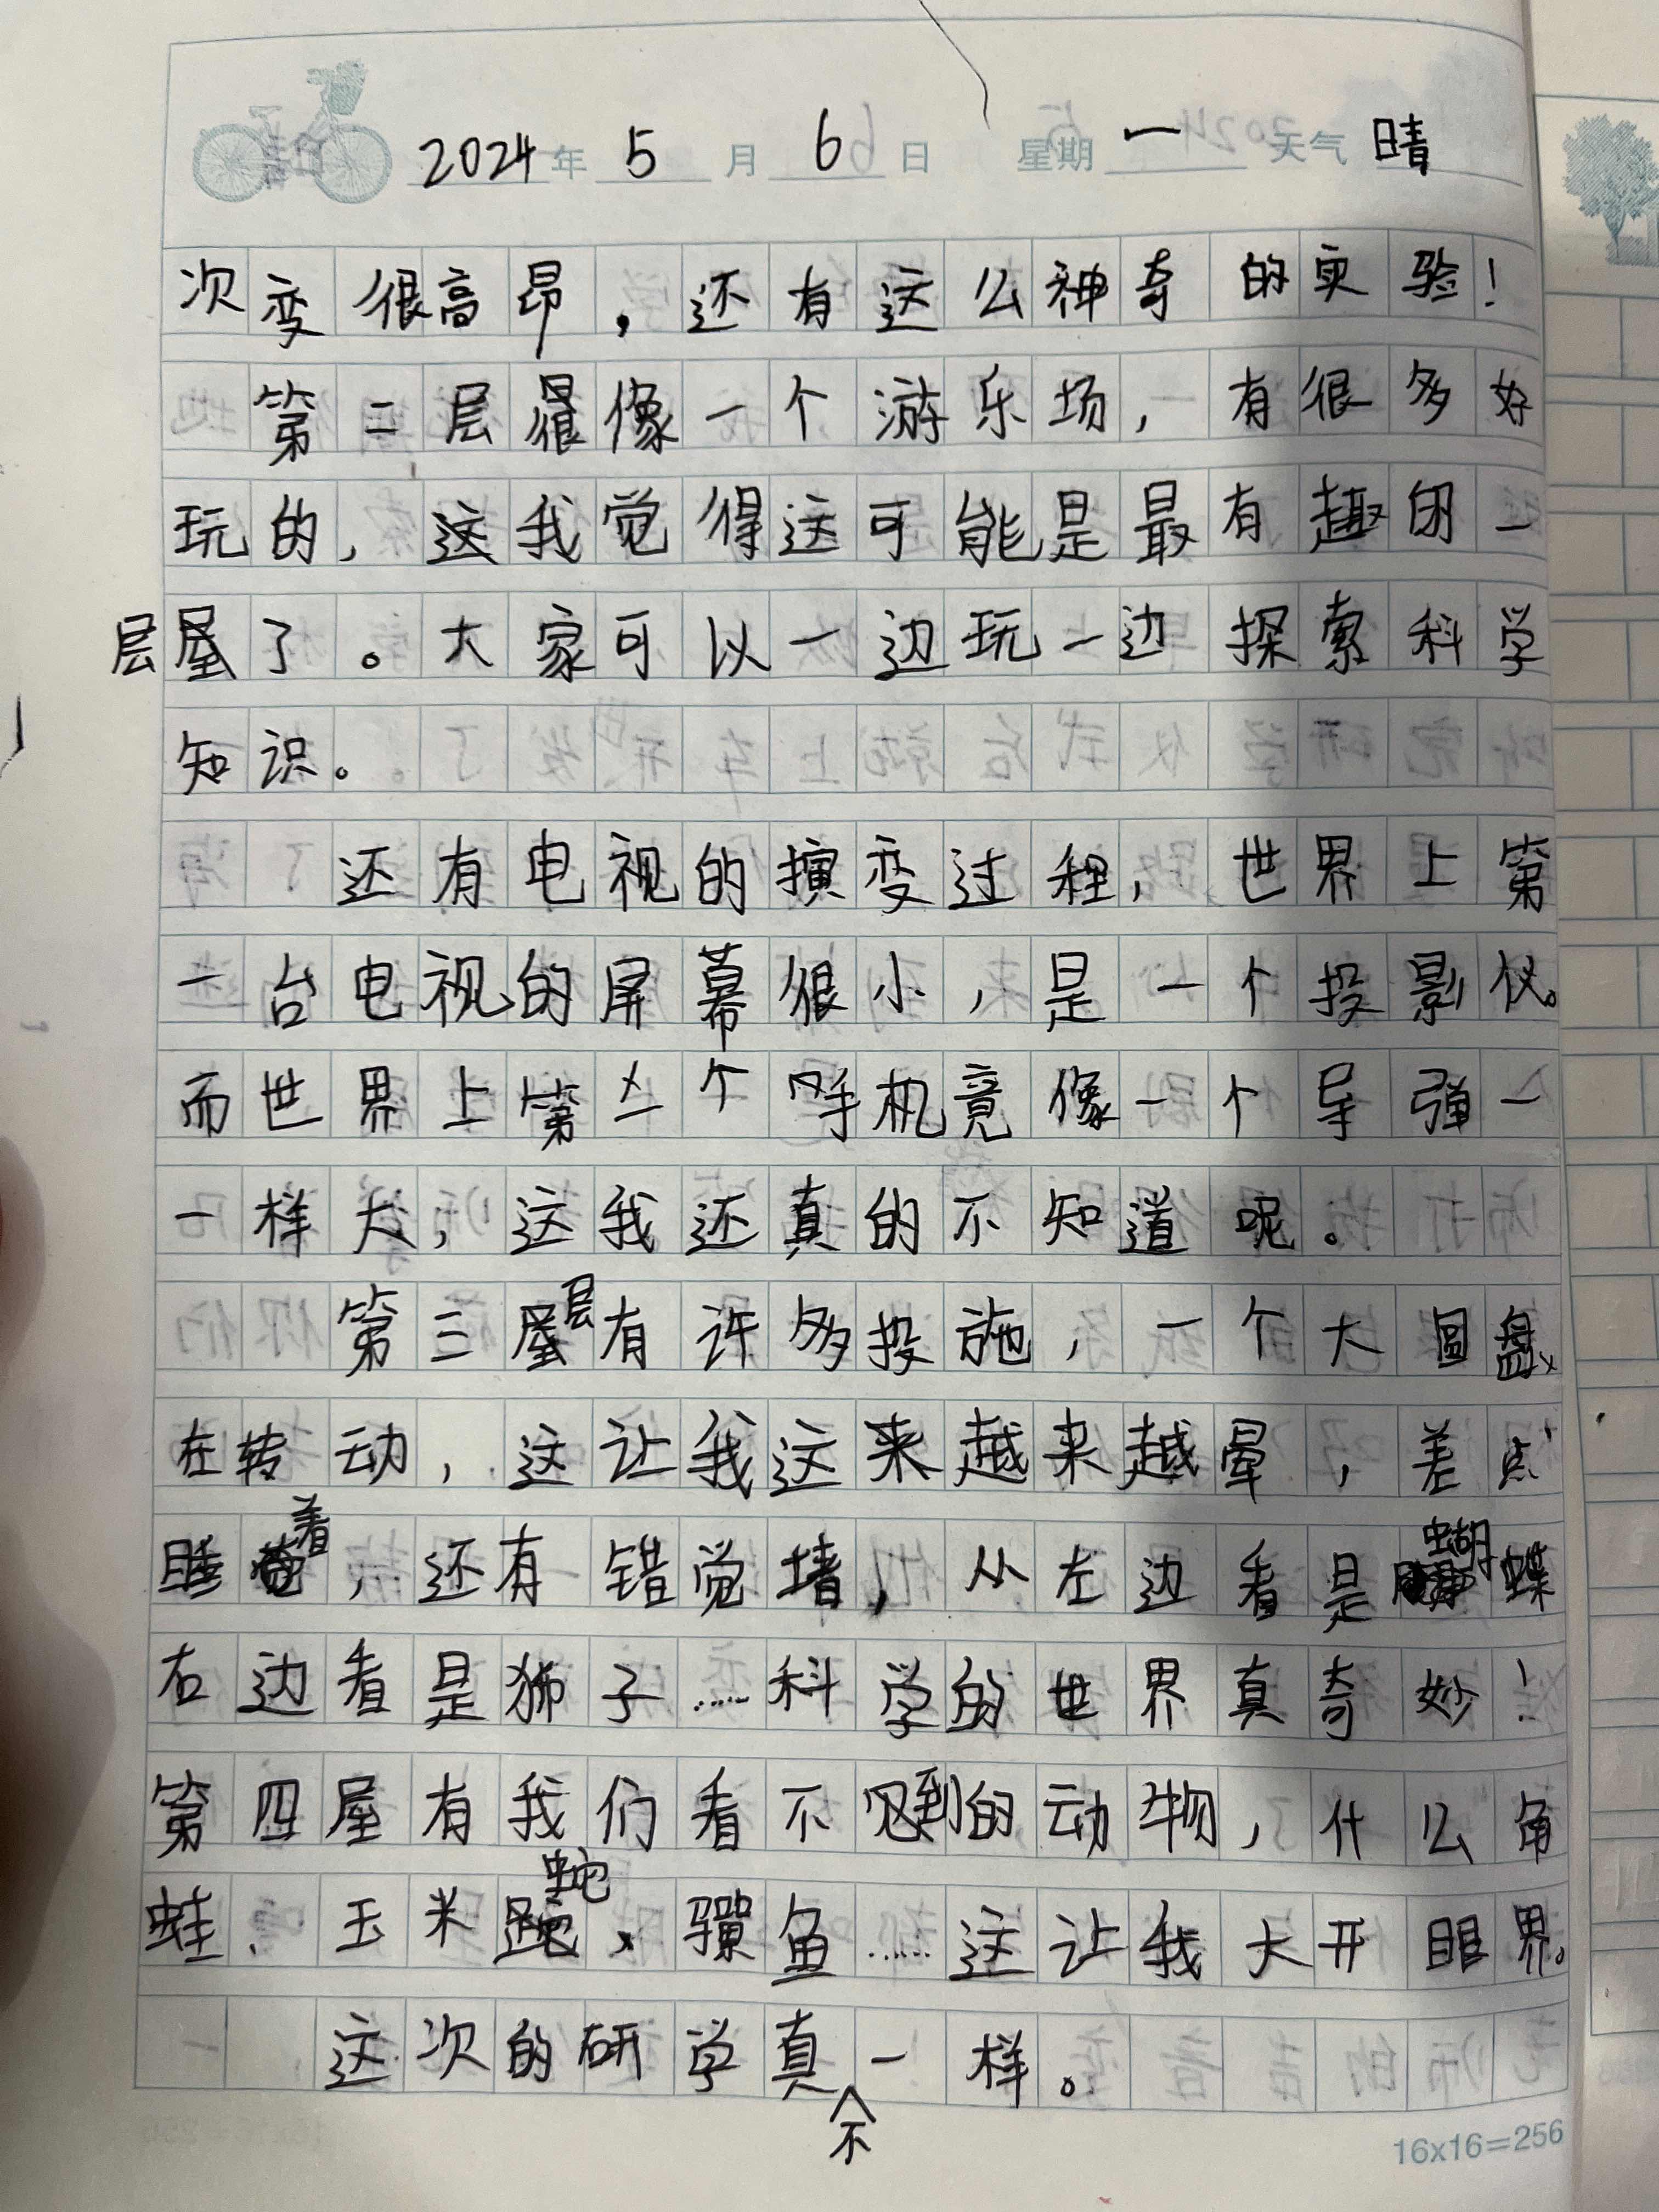 2024年5月6日 星期一 天气 晴
次变很高昂，还有这么神奇的实验！
第二层很像一个游乐场，有很多好
玩的，这我觉得这可能是最有趣的一
层了。大家可以一边玩一边探索科学
知识。
还有电视的演变过程，世界上第
一台电视的屏幕很小，是一个投影仪。
而世界上第一个手机竟像一个导弹一
一样大，这我还真的不知道呢。
第三层有许多投施，一个大圆盘
在转动，这让我这来越来越晕，差点
睡着，还有错觉墙，从左边看是蝴蝶
右边看是狮子……科学的世界真奇妙！
第四屋有我们看不见到的动物，什么角
蛙、玉米蛇、骥鱼……这让我大开眼界。
这次的研学真不一样。
16x16=256